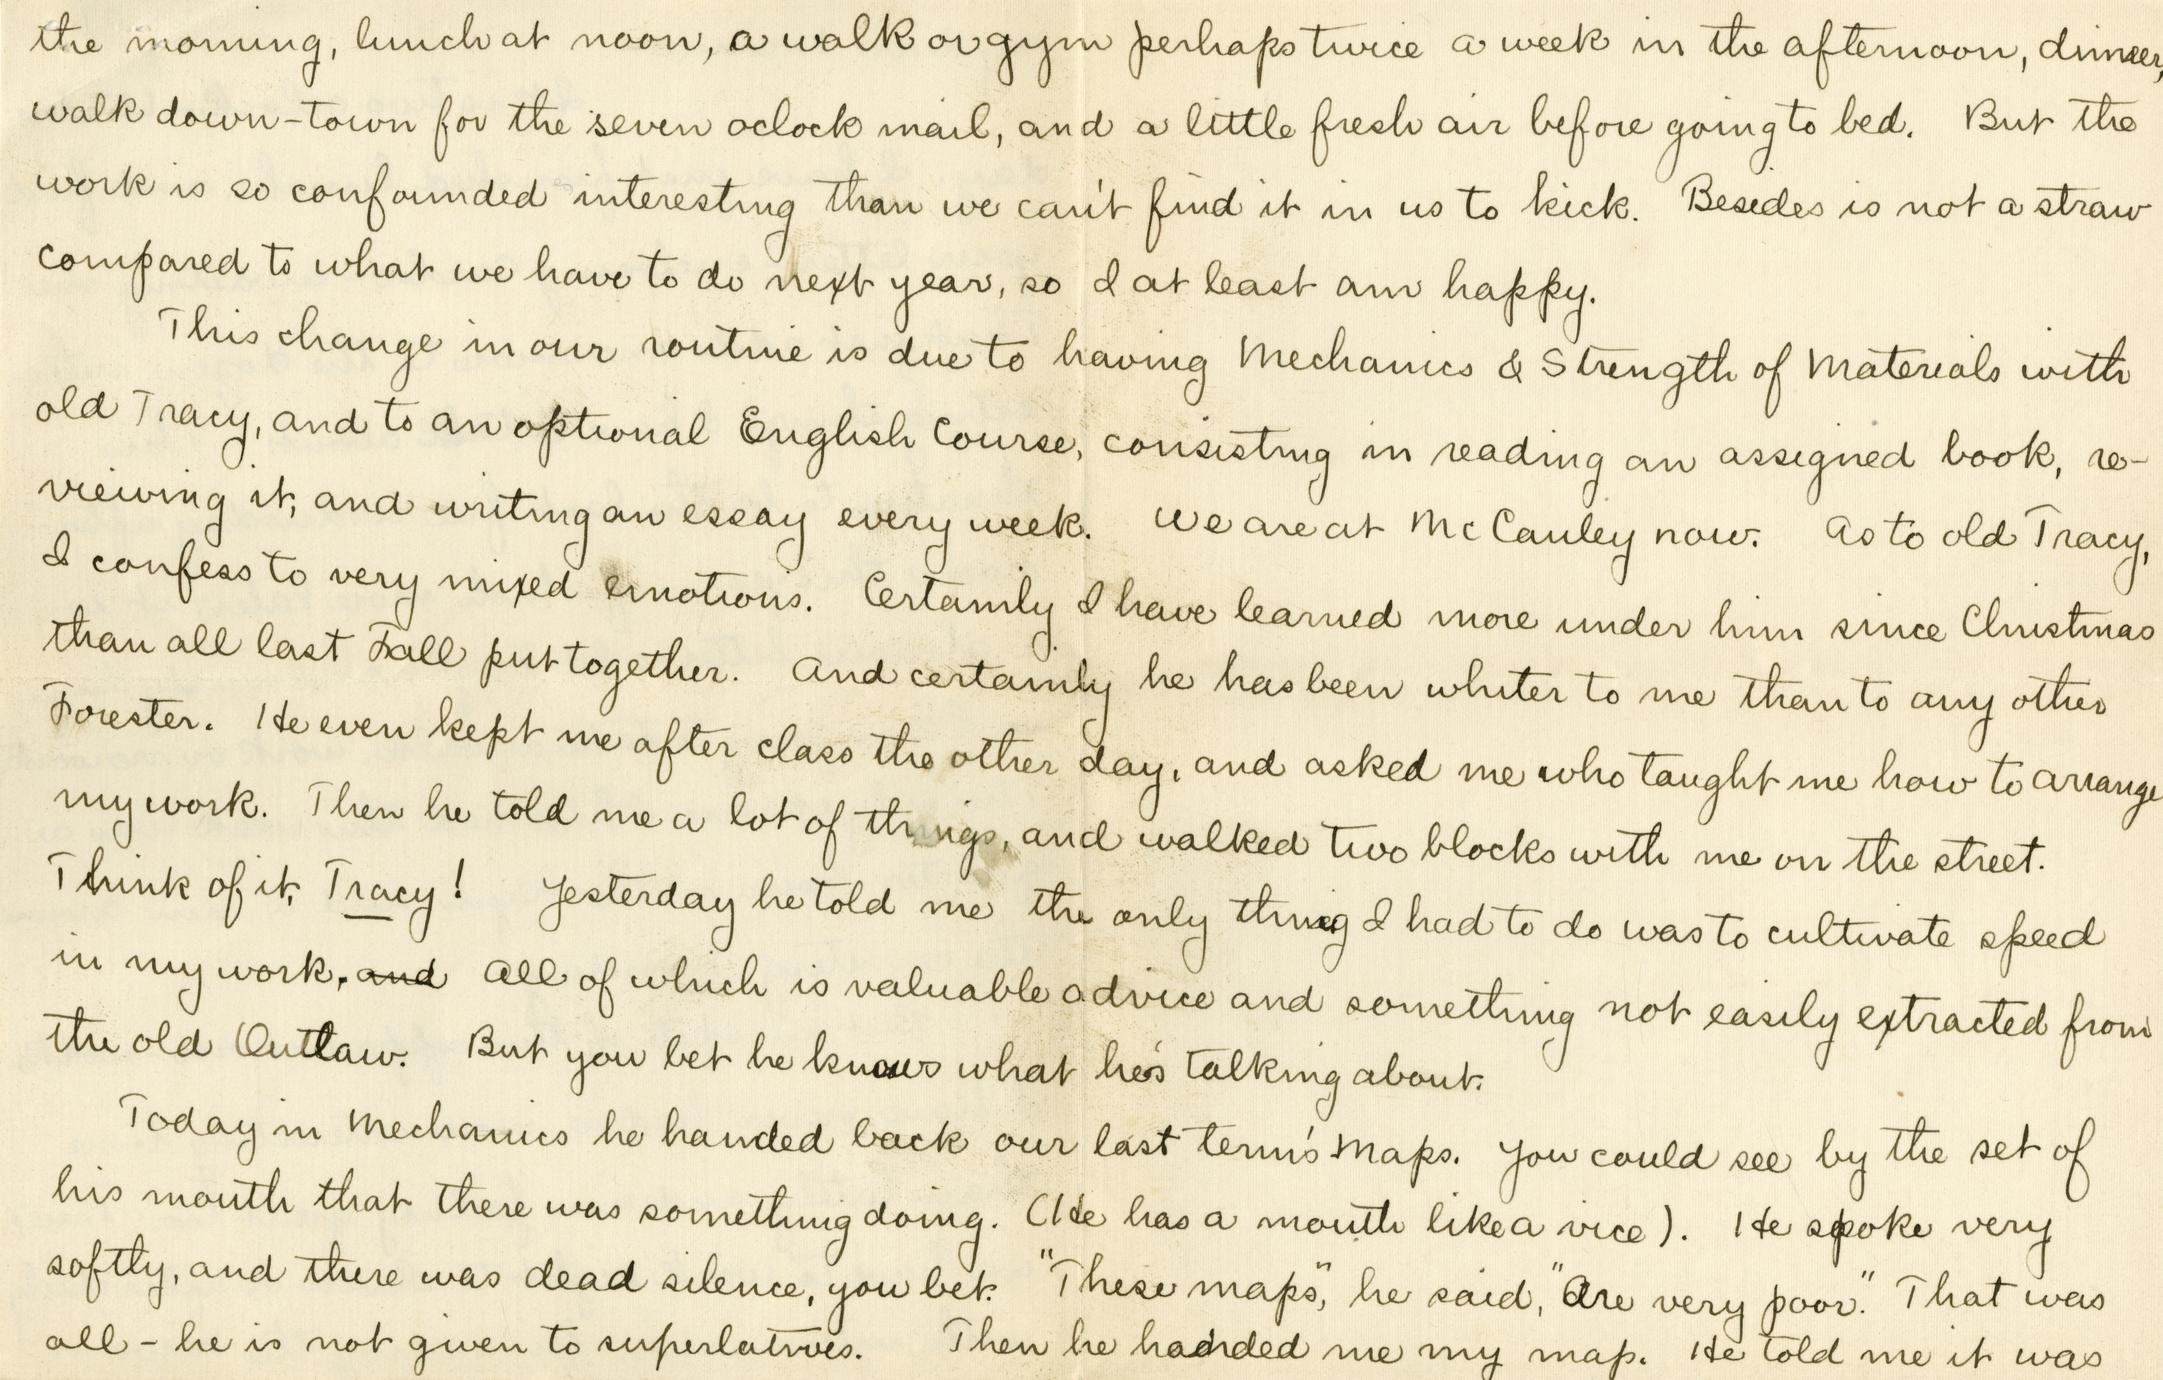 the morning, lunch at noon, a walk or gym perhaps twice a week in the afternoon, dinner,
walk down-town for the seven oclock mail, and a little fresh air before going to bed. But the
work is so confounded interesting than we can't find it in us to kick. Besides is not a straw
compared to what we have to do next year, so I at least am happy.
This change in our routine is due to having Mechanics & Strength of Materials with
old Tracy, and to an optional English Course, consisting in reading an assigned book, re-
viewing it, and writing an essay every week. We are at McCauley now. As to old Tracy,
I confess to very mixed emotions. Certainly I have learned more under him since Christmas
than all last Fall put together. And certainly he has been whiter to me than to any other
Forester. He even kept me after class the other day, and asked me who taught me how to arrange
my work. Then he told me a lot of things, and walked two blocks with me on the street.
Think of it, Tracy! Yesterday he told me the only thing I had to do was to cultivate speed
in my work. and All of which is valuable advice and something not easily extracted from
the old Outlaw. But you bet he knows what he's talking about.
Today in Mechanics he handed back our last term's maps. You could see by the set of
his mouth that there was something doing. (He has a mouth like a vice). He spoke very
softly, and there was dead silence, you bet. "These maps", he said, "Are very poor." That was
all - he is not given to superlatives. Then he handed me my map. He told me it was